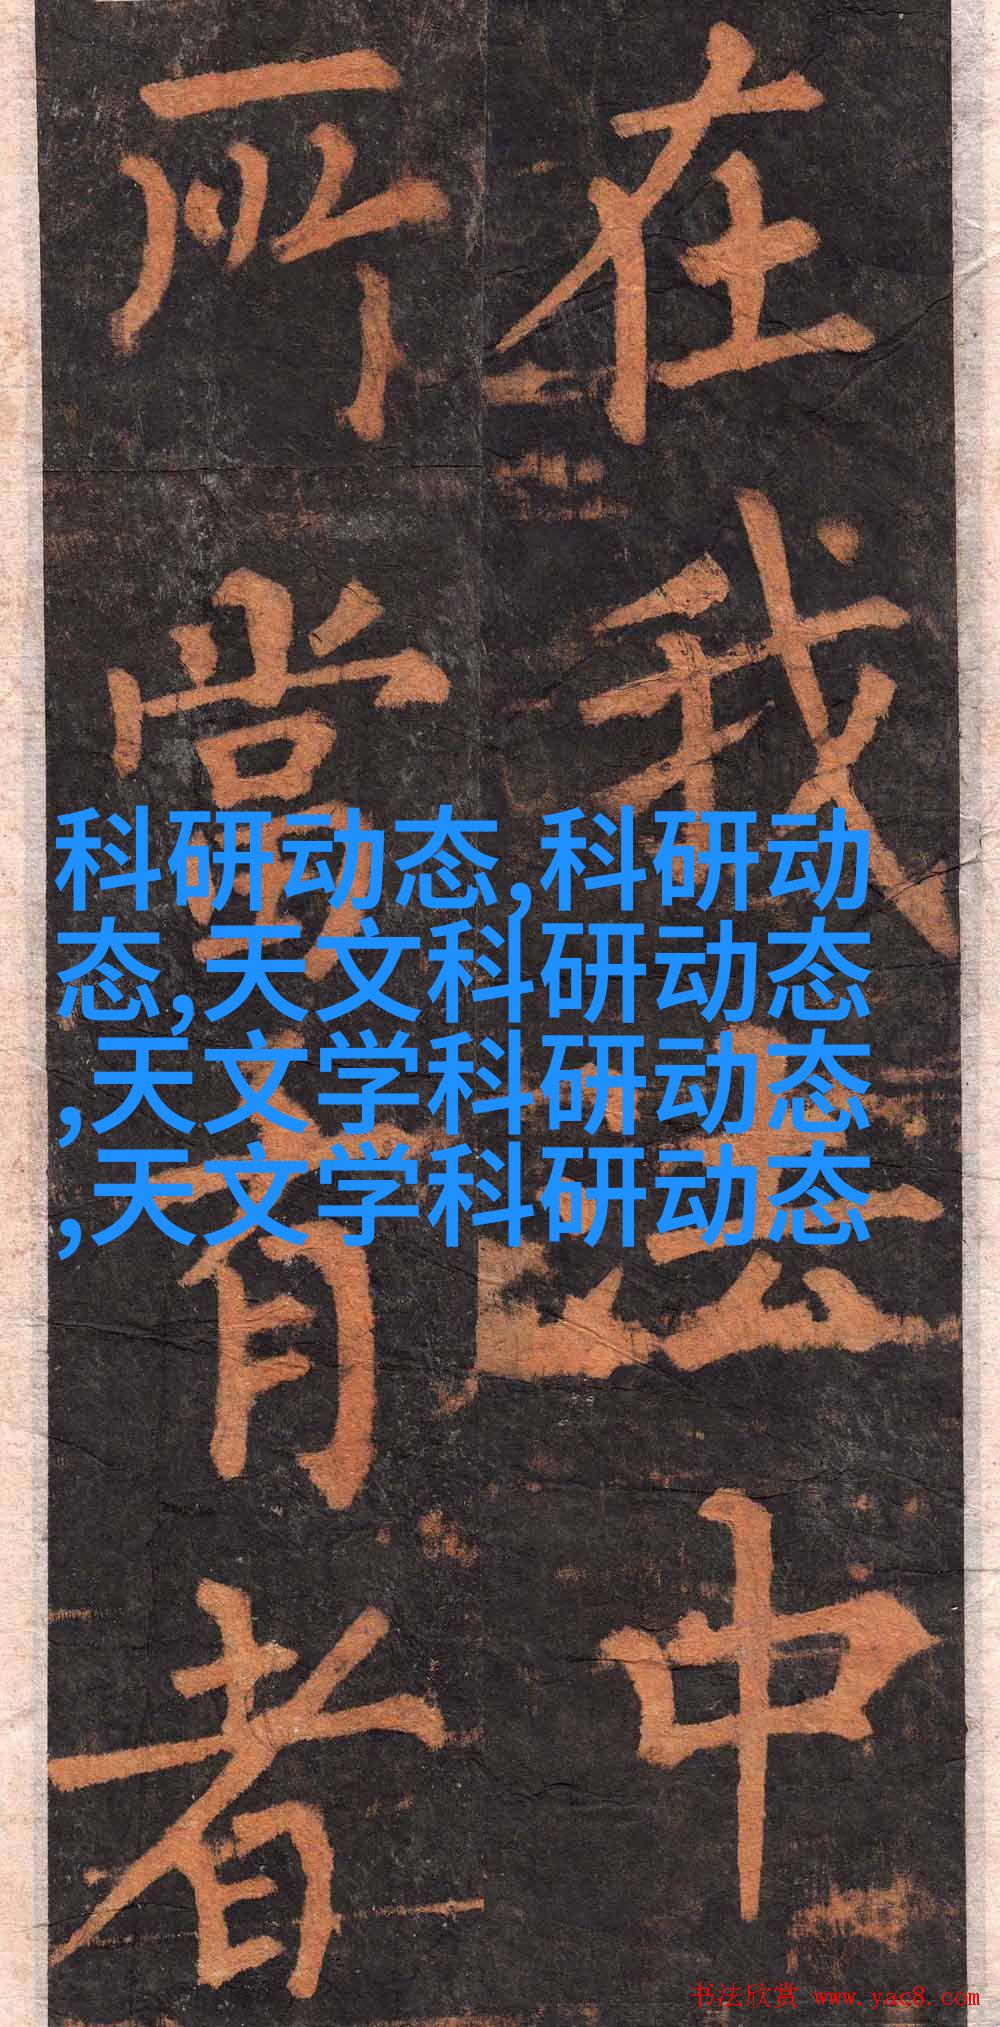 在我法中
所當有者
科研动态,科研动
态,天文科研动态
,天文学科研动态
,天文学科研动态
书法欣赏 www.yac8.com